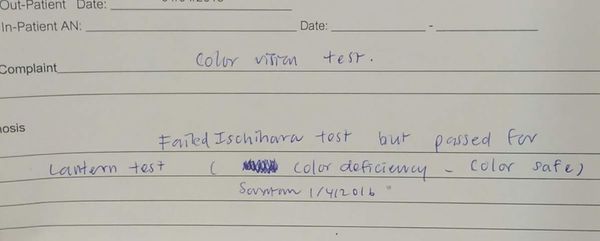 Out-Patient Date:
In-Patient AN: Date: -
Complaint color vision test.
nosis
Failed Ischihara test but passed for
Lantern test ( color deficiency - color safe)
1/4/2016